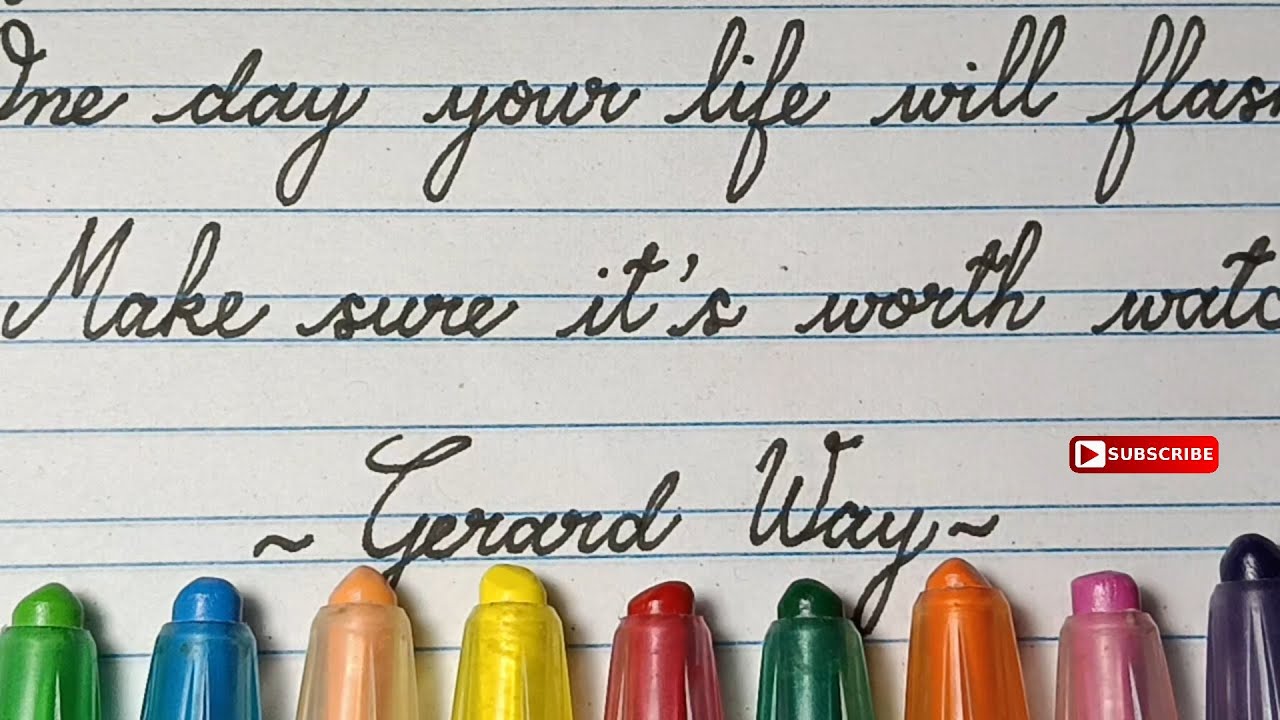 One day your life will flash
Make sure it's worth watc
~ Gerard Way ~
SUBSCRIBE